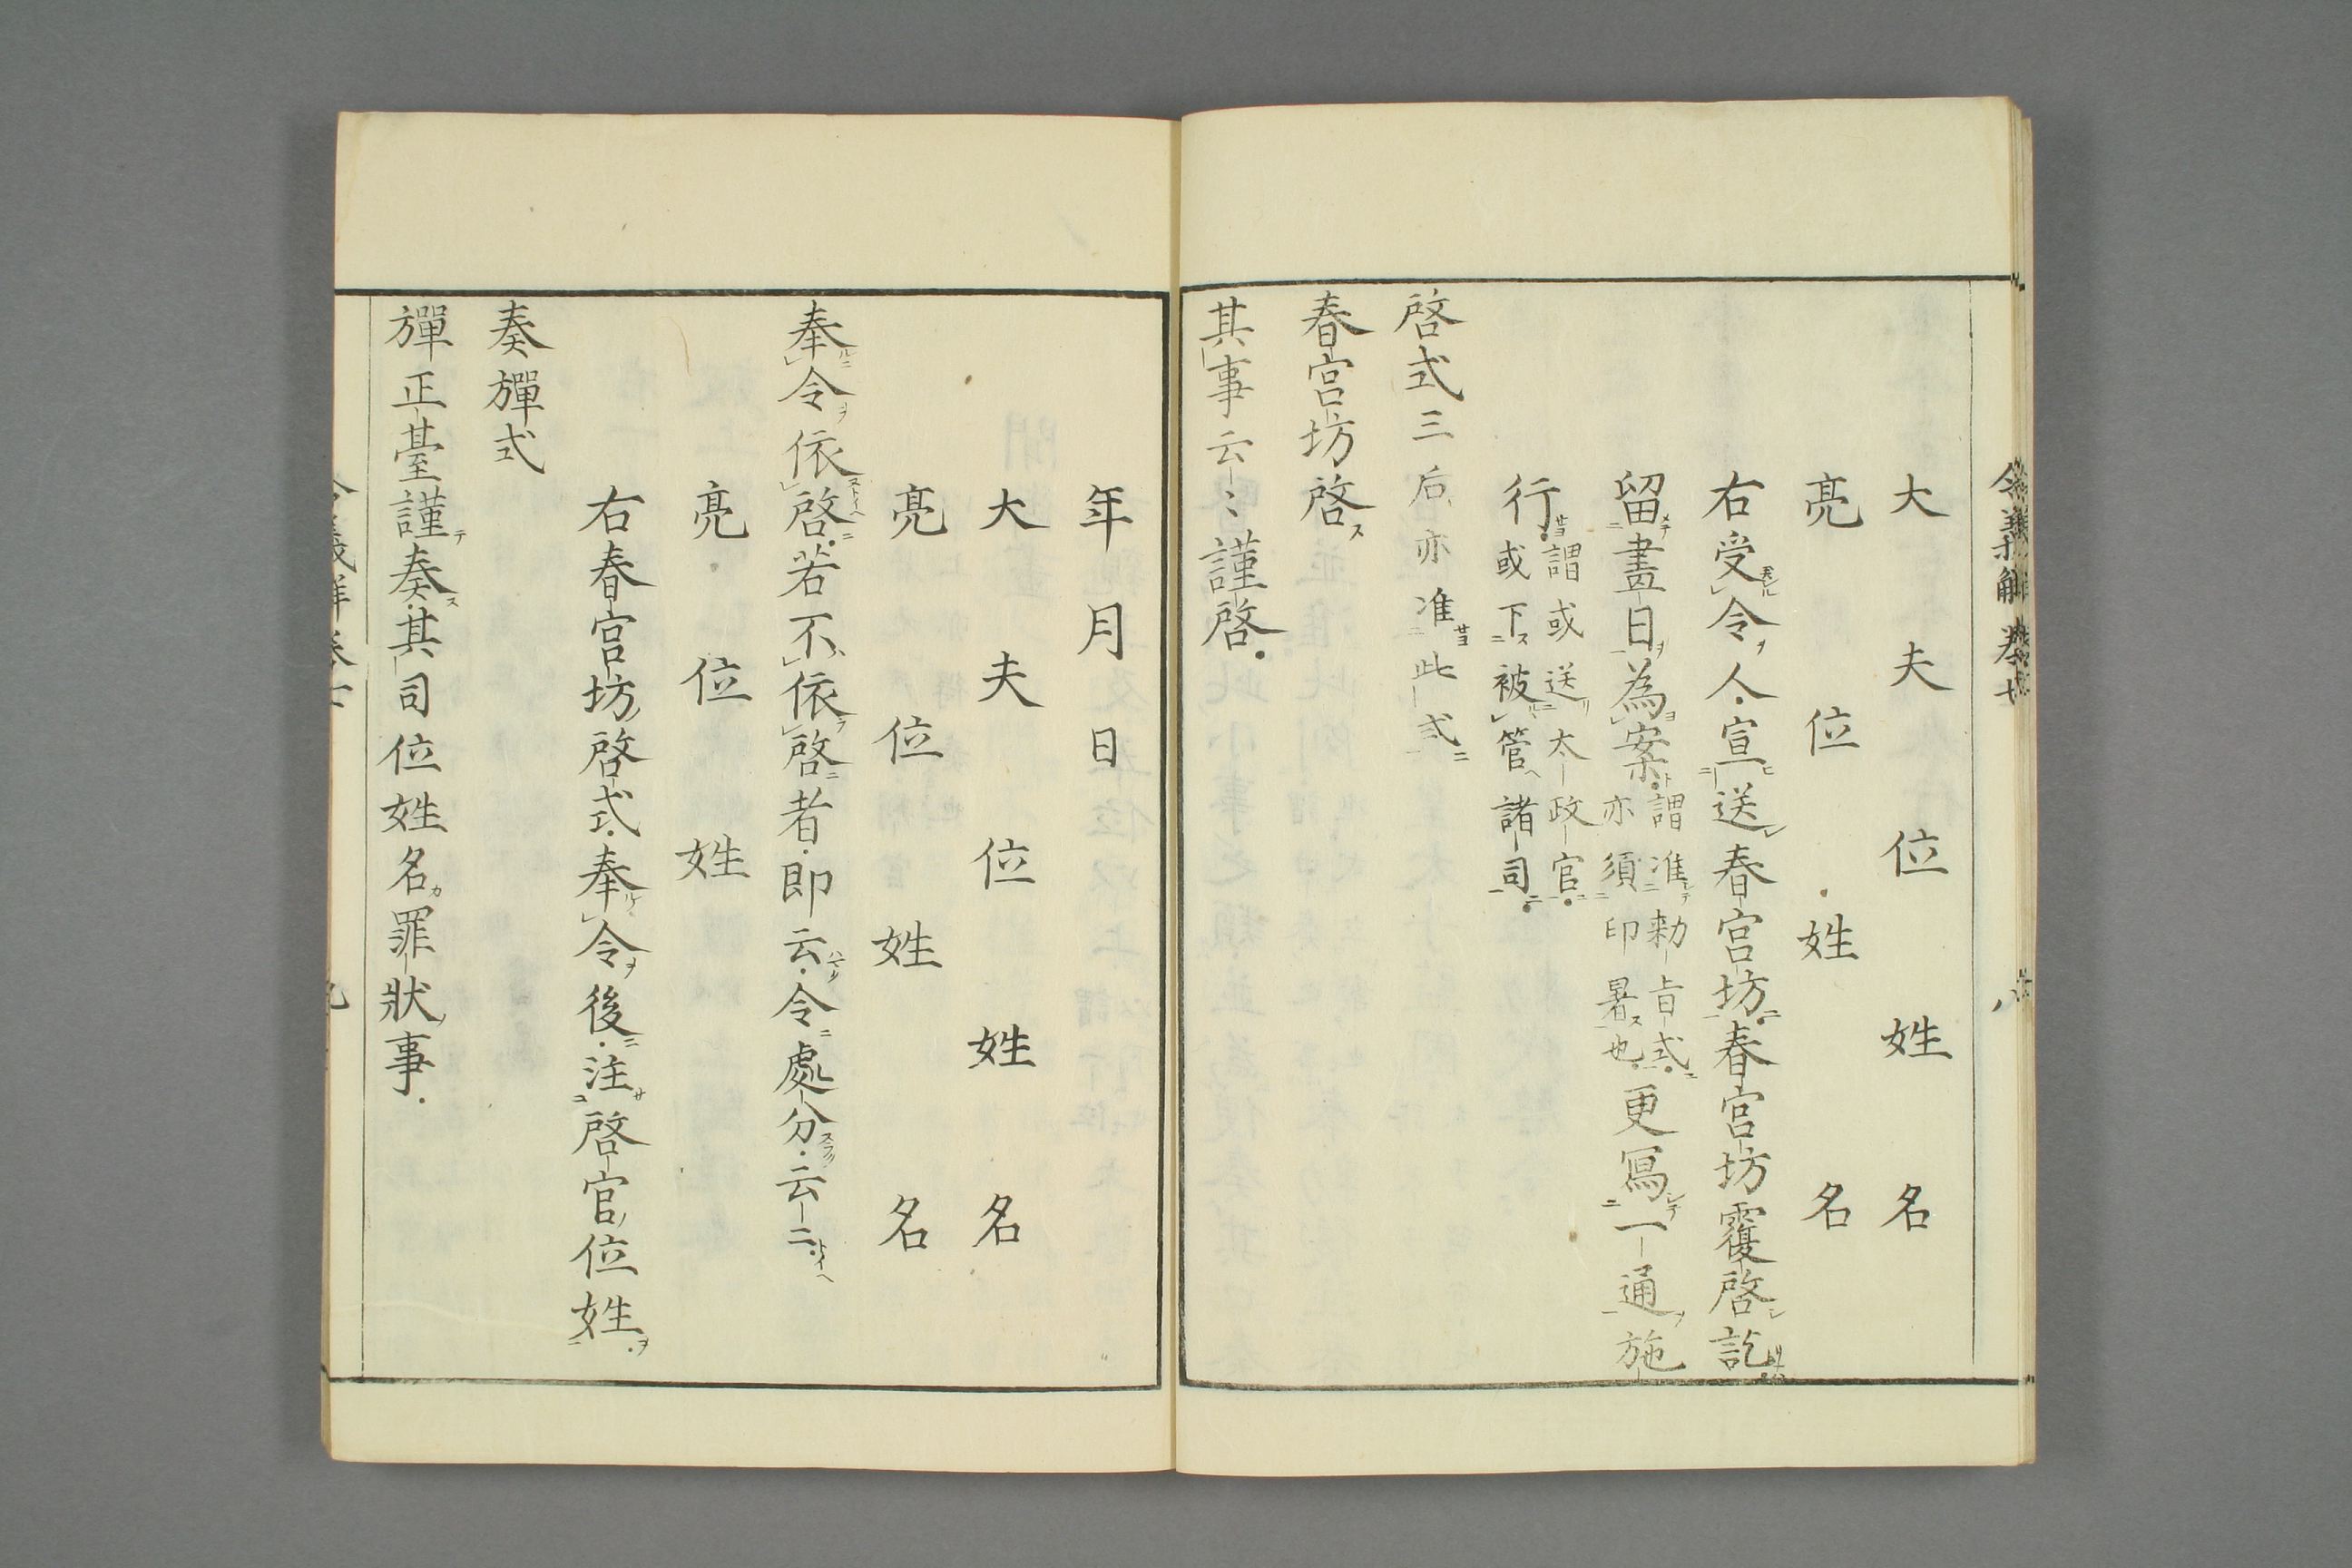 令義解巻七 八
大夫位姓名
亮位姓名
右受令人宣送春宮坊春宮坊覆啓訖
留畫日為案謂准勅旨式亦須印署也更冩一通施
行謂或送太政官或下被管諸司
啓式三后亦准此式
春宮坊啓
其事云〻謹啓
年月日
大夫位姓名
亮位姓名
奉令依啓若不依啓者即云令處分云〻
亮位姓
右春宮坊啓式奉令後注啓官位姓
奏彈式
彈正臺謹奏其司位姓名罪狀事